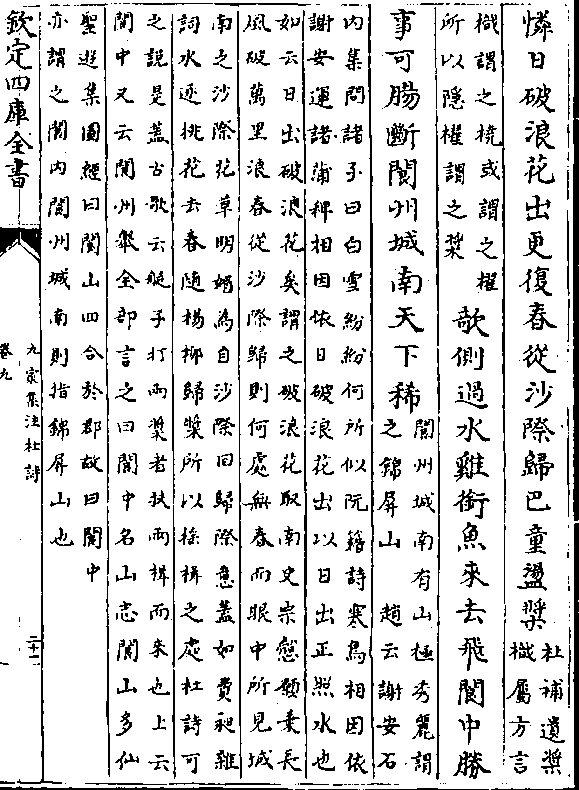 憐日破浪花出更復春從沙際歸巴童盪槳杜補遺槳檝屬方言
檝謂之橈或謂之櫂所以隱櫂謂之槳欹側過水雞銜魚來去飛閬中勝
事可腸斷閬州城南天下稀閬州城南有山極秀麗謂之錦屏山 趙云謝安石
内集問諸子曰白雪紛紛何所似阮籍詩寒鳥相因依
謝安運諸蒲稗相因依日破浪花出以日出正照水也
如云日出破浪花矣謂之破浪花取南史宗慤願乗長
風破萬里浪春從沙際歸則何處無春而眼中所見城
南之沙際花草明媚為自沙際回歸際意蓋如費昶雜
詞水逐桃花去春随楊柳歸槳所以揺楫之處杜詩可
之說是蓋古歌云艇子打兩槳者扶兩楫而來也上云
閬中又云閬州舉全郡言之曰閬中名山志閬山多仙
聖遊集圖經曰閬山四合於郡故曰閬中
亦謂之閬内閬州城南則指錦屏山也
欽定四庫全書
九家集注杜詩
卷九
二十一